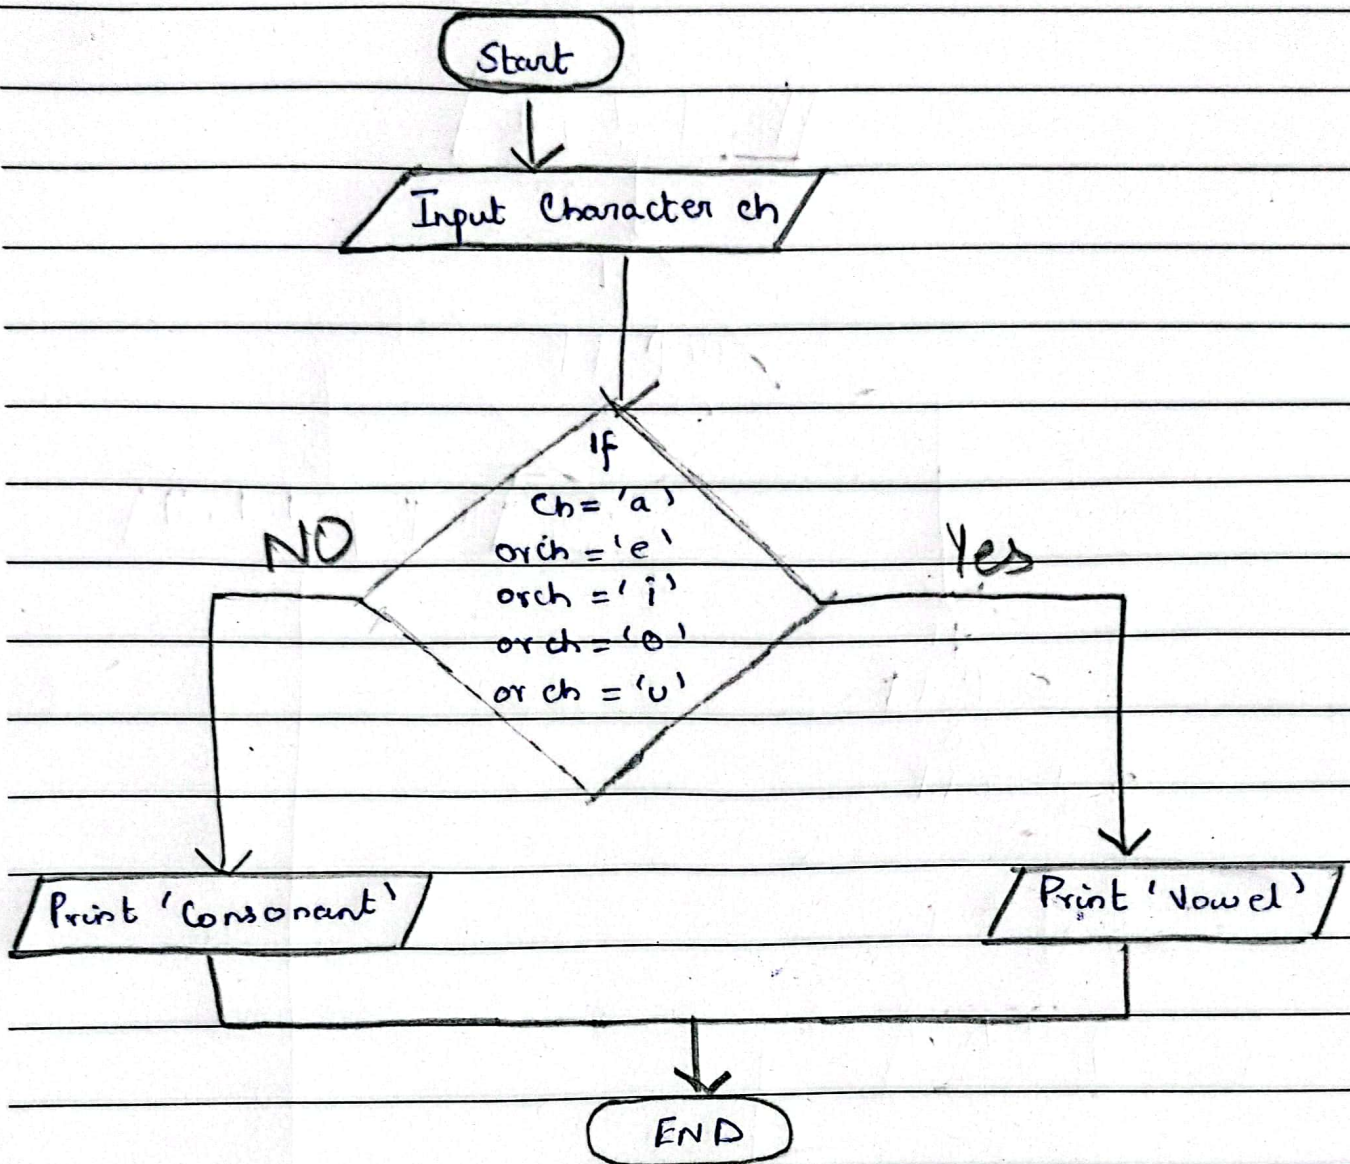 Start
Input Character ch
If
ch = 'a'
or ch = 'e'
or ch = 'i'
or ch = 'o'
or ch = 'u'
NO
Yes
Print 'Consonant'
Print 'Vowel'
END